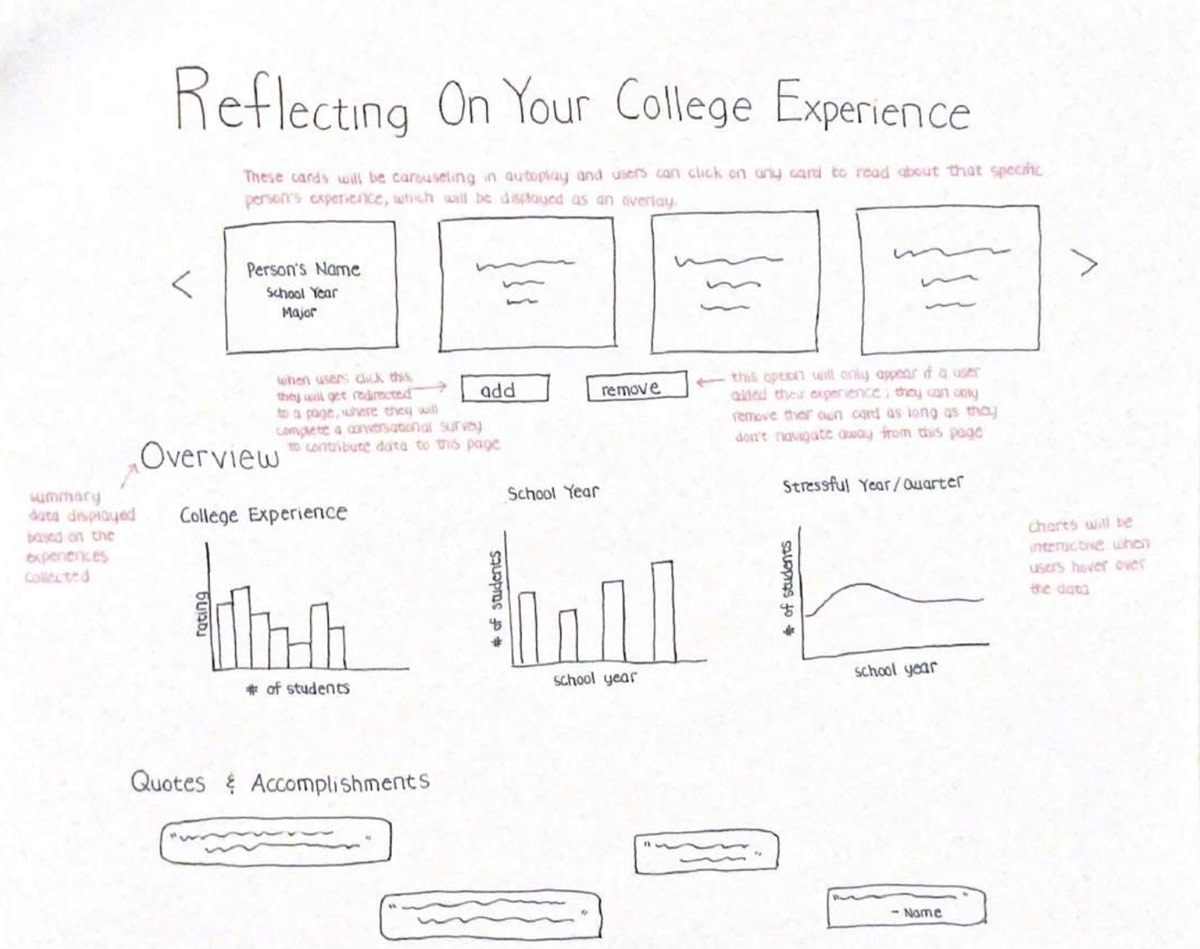 Reflecting On Your College Experience
These cards will be carouseling in autoplay and users can click on any card to read about that specific
person's experience, which will be displayed as an overlay.
<
Person's Name
School Year
Major
>
when users click this
they will get redirected
to a page, where they will
complete a conversational survey
to contribute data to this page
add
remove
this option will only appear if a user
added their experience; they can only
remove their own card as long as they
don't navigate away from this page
Overview
summary
data displayed
based on the
experiences
collected
College Experience
rating
# of students
School Year
# of students
school year
Stressful Year/Quarter
# of students
school year
charts will be
interactive when
users hover over
the data
Quotes & Accomplishments
"
"
"
"
"
"
"
"
- Name